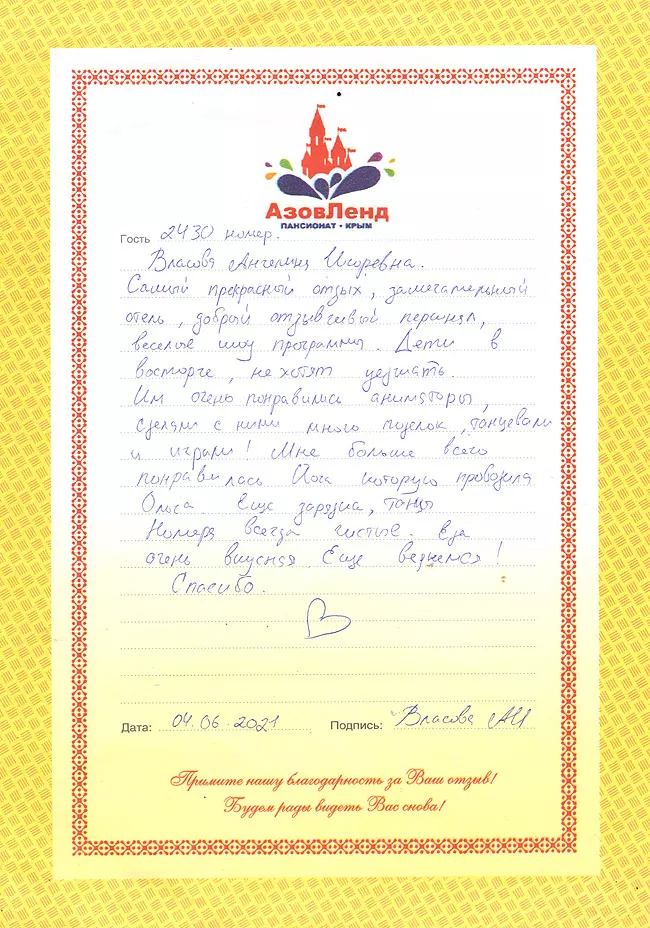 АзовЛенд
ПАНСИОНАТ • КРЫМ
Гость 2430 номер.
Власова Ангелина Игоревна.
Самый прекрасный отдых, замечательный
отель, добрый отзывчивый персонал,
веселые шоу программы. Дети в
восторге, не хотят уезжать.
Им очень понравились аниматоры,
сделали с ними много поделок, танцевали
и играли! Мне больше всего
понравилась Йога которую проводила
Ольга. Еще зарядка, танцы
Номера всегда чистые. Еда
очень вкусная. Еще вернемся!
Спасибо.
Дата: 04.06.2021 Подпись: Власова АИ
Примите нашу благодарность за Ваш отзыв!
Будем рады видеть Вас снова!